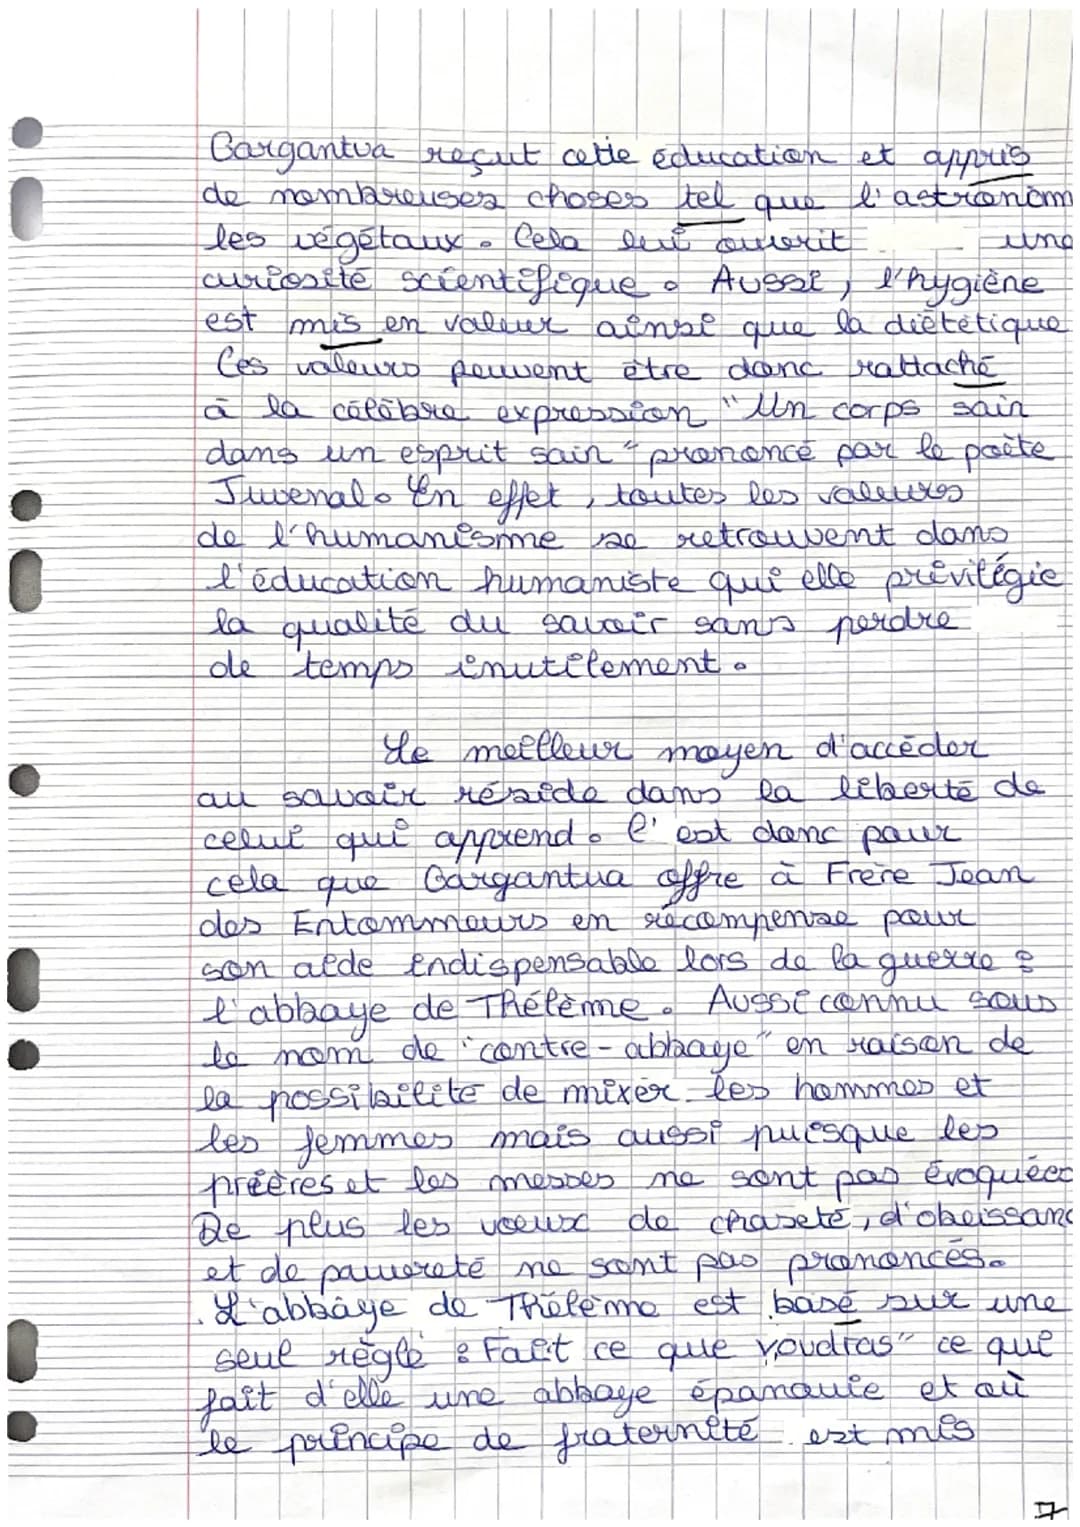 Gargantua reçut cette éducation et appris
de nombreuses choses tel que l'astronom
les végétaux. Cela lui ouvrit une
curiosité scientifique. Aussi, l'hygiène
est mis en valeur ainsi que la diététique
Ces valeurs peuvent être donc rattaché
à la célèbre expression "Un corps sain
dans un esprit sain" prononcé par le poète
Juvenal. En effet, toutes les valeures
de l'humanisme se retrouvent dans
l'éducation humaniste qui elle privilégie
la qualité du savoir sans perdre
de temps inutilement.
Le meilleur moyen d'accéder
au savoir réside dans la liberté de
celui qui apprend. C'est donc pour
cela que Gargantua offre à Frère Jean
des Entommeurs en récompense pour
son aide indispensable lors de la guerre :
l'abbaye de Thélème. Aussi connu sous
le nom de "contre-abbaye" en raison de
la possibilité de mixer les hommes et
les femmes mais aussi puisque les
prières et les messes ne sont pas évoquées
De plus les voeux de chasteté, d'obeissanc
et de pauvreté ne sont pas prononcés.
L'abbaye de Thélème est basé sur une
seul règle : Fait ce que voudras" ce que
fait d'elle une abbaye épanouie et où
le principe de fraternité est mis
7